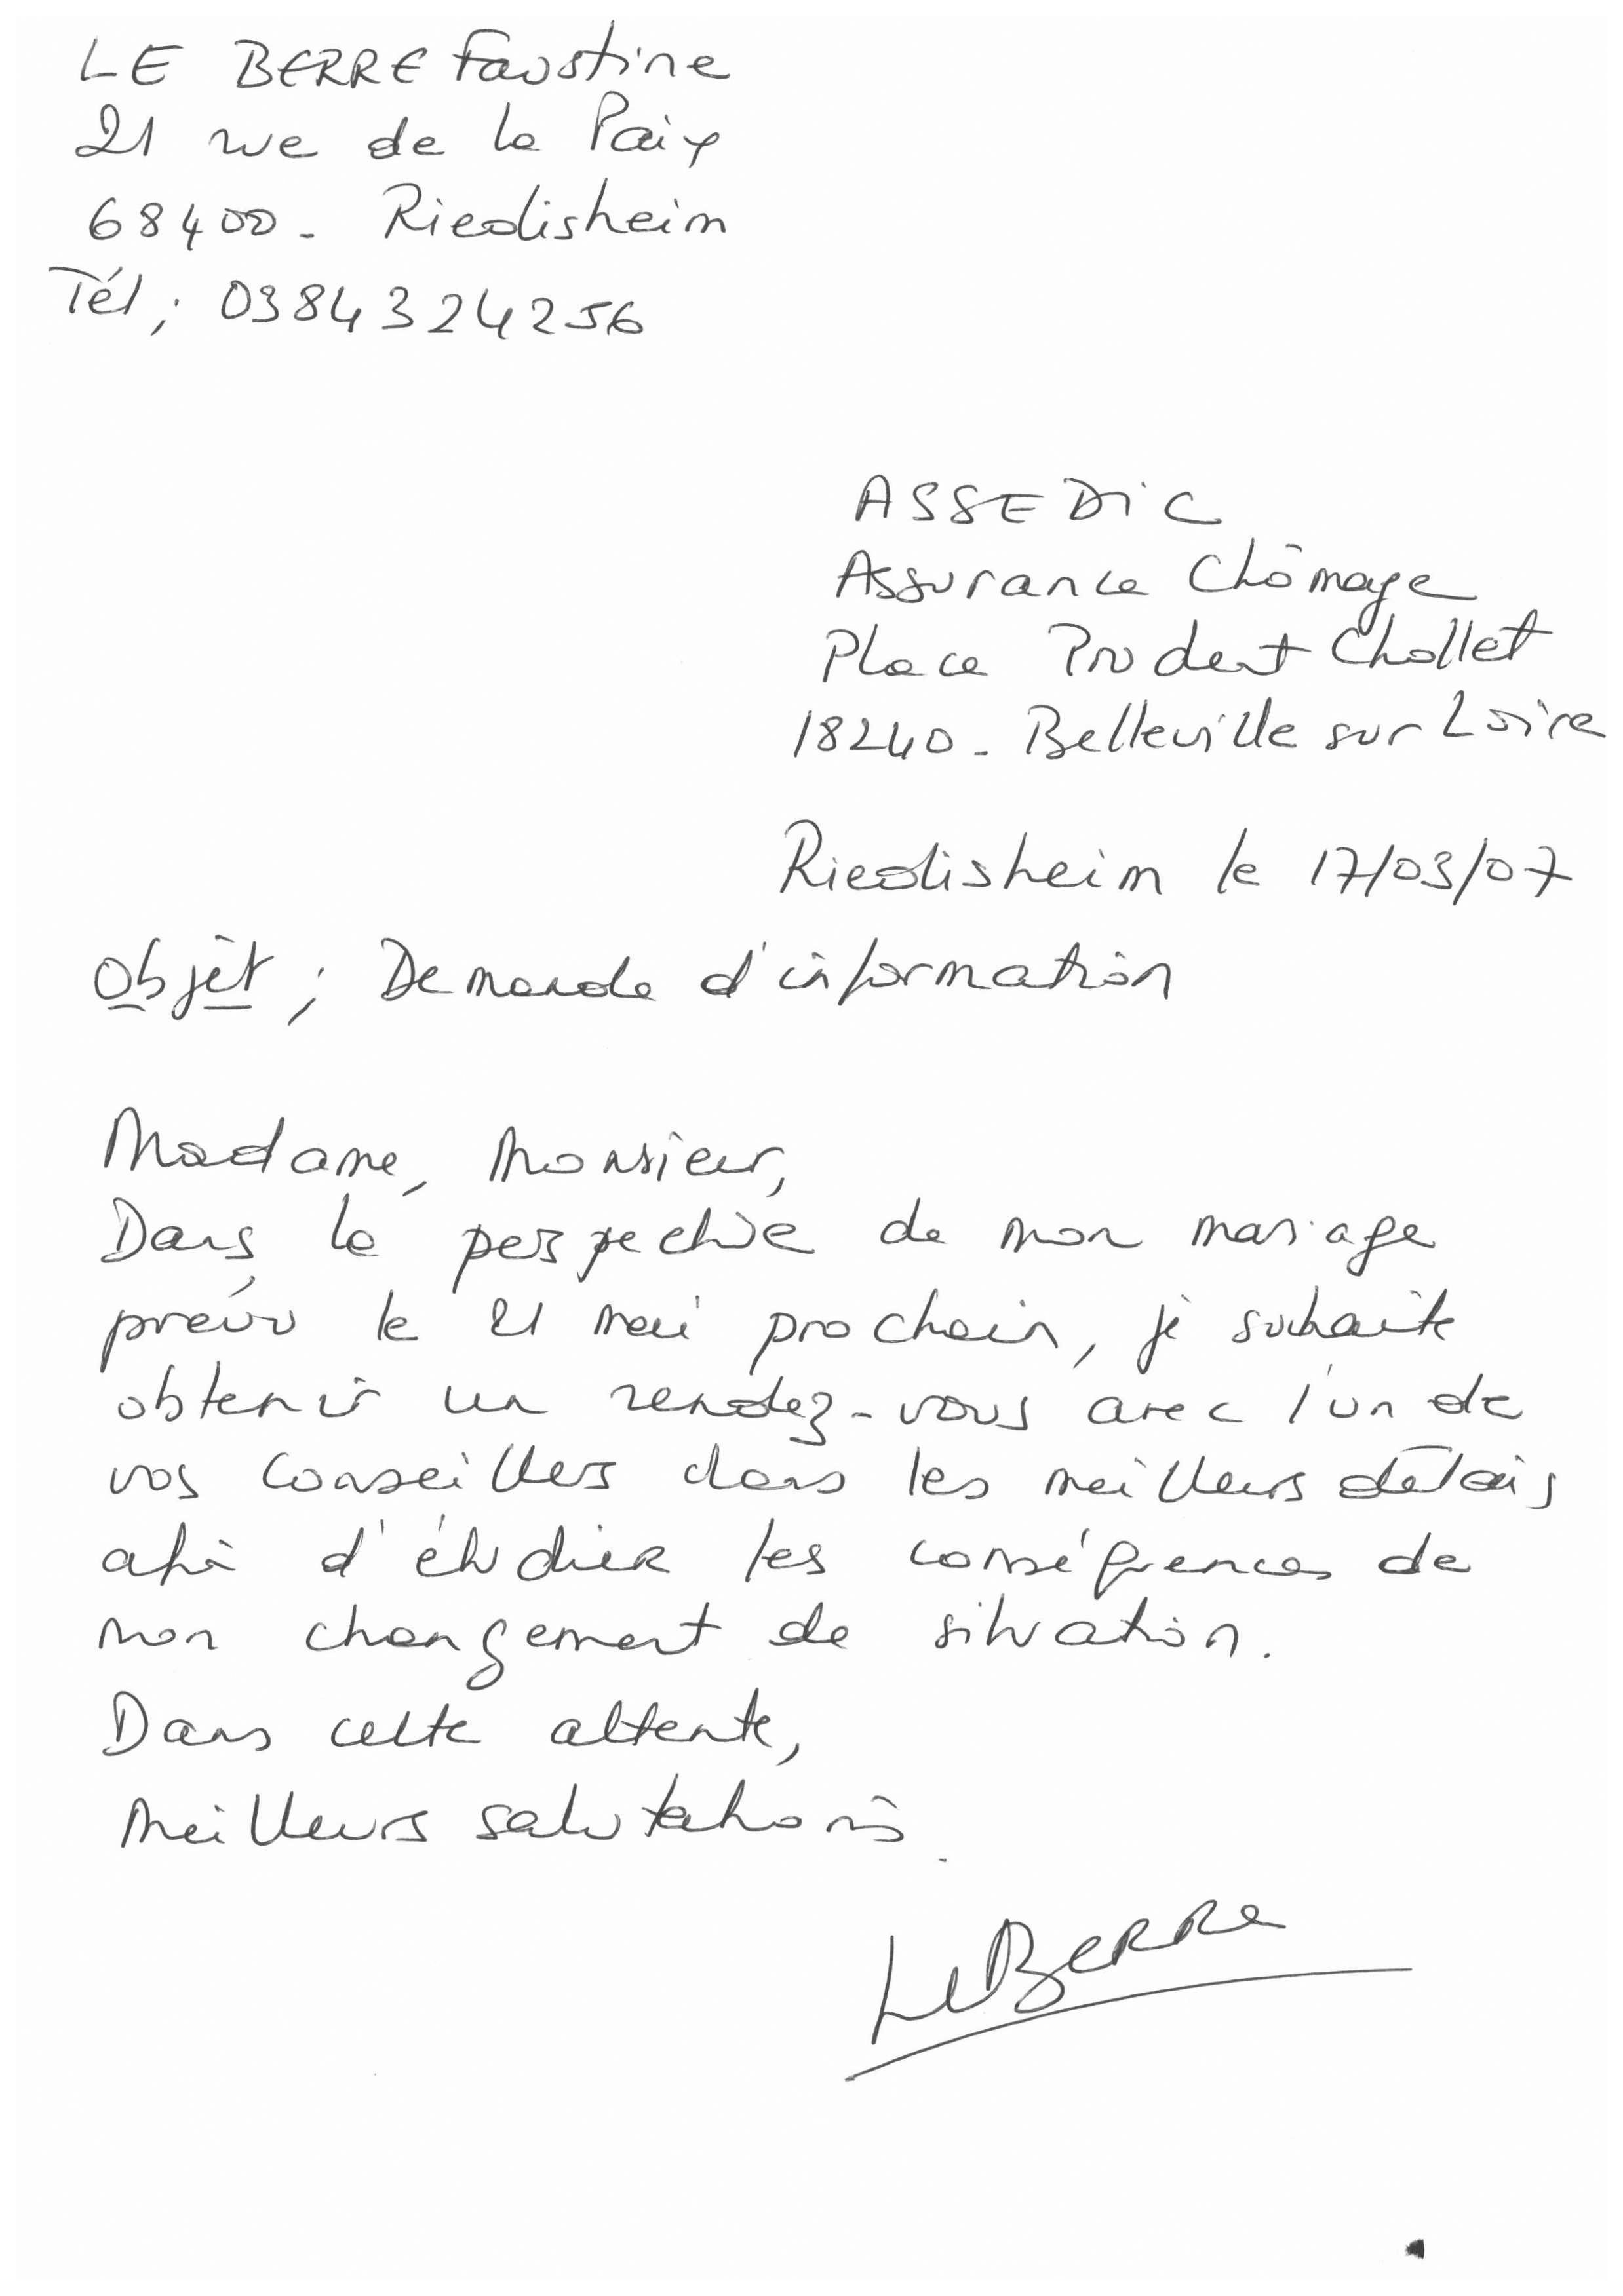 LE BERRE Faustine
21 rue de la Paix
68400 - Riedisheim
Tél ; 0384324256
ASSEDiC
Assurance Chômage
Place Prudent Chollet
18240 - Belleville sur Loire
Riedisheim le 17/03/07
Objet ; Demande d'information
Madame, Monsieur,
Dans la perspective de mon mariage
prévu le 21 mai prochain, je souhaite
obtenir un rendez-vous avec l'un de
vos conseillers dans les meilleurs délais
afin d'étudier les conséquences de
mon changement de situation.
Dans cette attente,
Meilleurs salutations.
Le BERRE